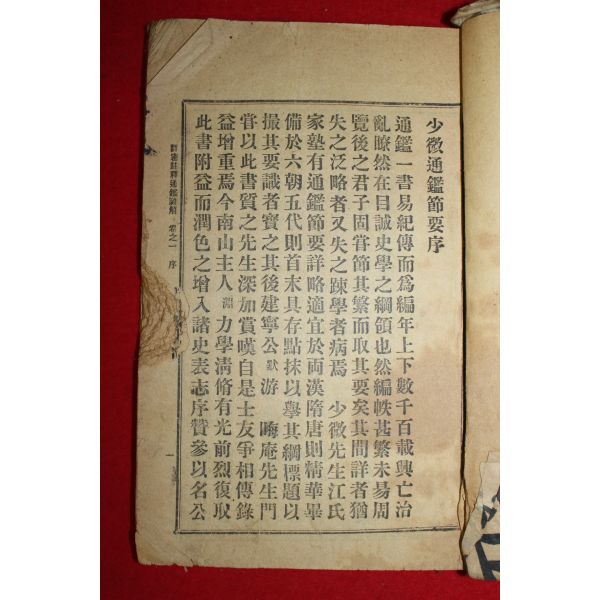 少微通鑑節要序
通鑑一書易紀傳而爲編年上下數千百載興亡治
亂瞭然在目誠史學之綱領也然編帙甚繁未昜周
覽後之君子固甞節其繁而取其要矣其間詳者猶
失之泛略者又失之踈學者病焉 少微先生江氏
家塾有通鑑節要詳略適宜於両漢隋唐則精華畢
備於六朝五代則首末具存點抹以擧其綱標題以
撮其要識者寶之其後建寧公默游 晦庵先生門
甞以此書質之先生深加賞嘆自是士友爭相傳錄
益增重焉今南山主人淵力學淸脩有光前烈復取
此書附益而潤色之增入諸史表志序贊參以名公
註釋通鑑諺解 卷之一 序
一